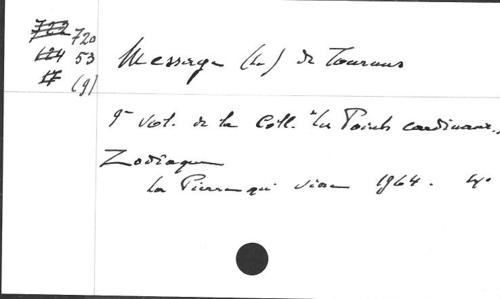 722 720
624 53
17 (9)
Message (Le) de Tournus
9e vol. de la Coll. "Les Points cardinaux"
Zodiaque
La Pierre qui vire 1964. 4°